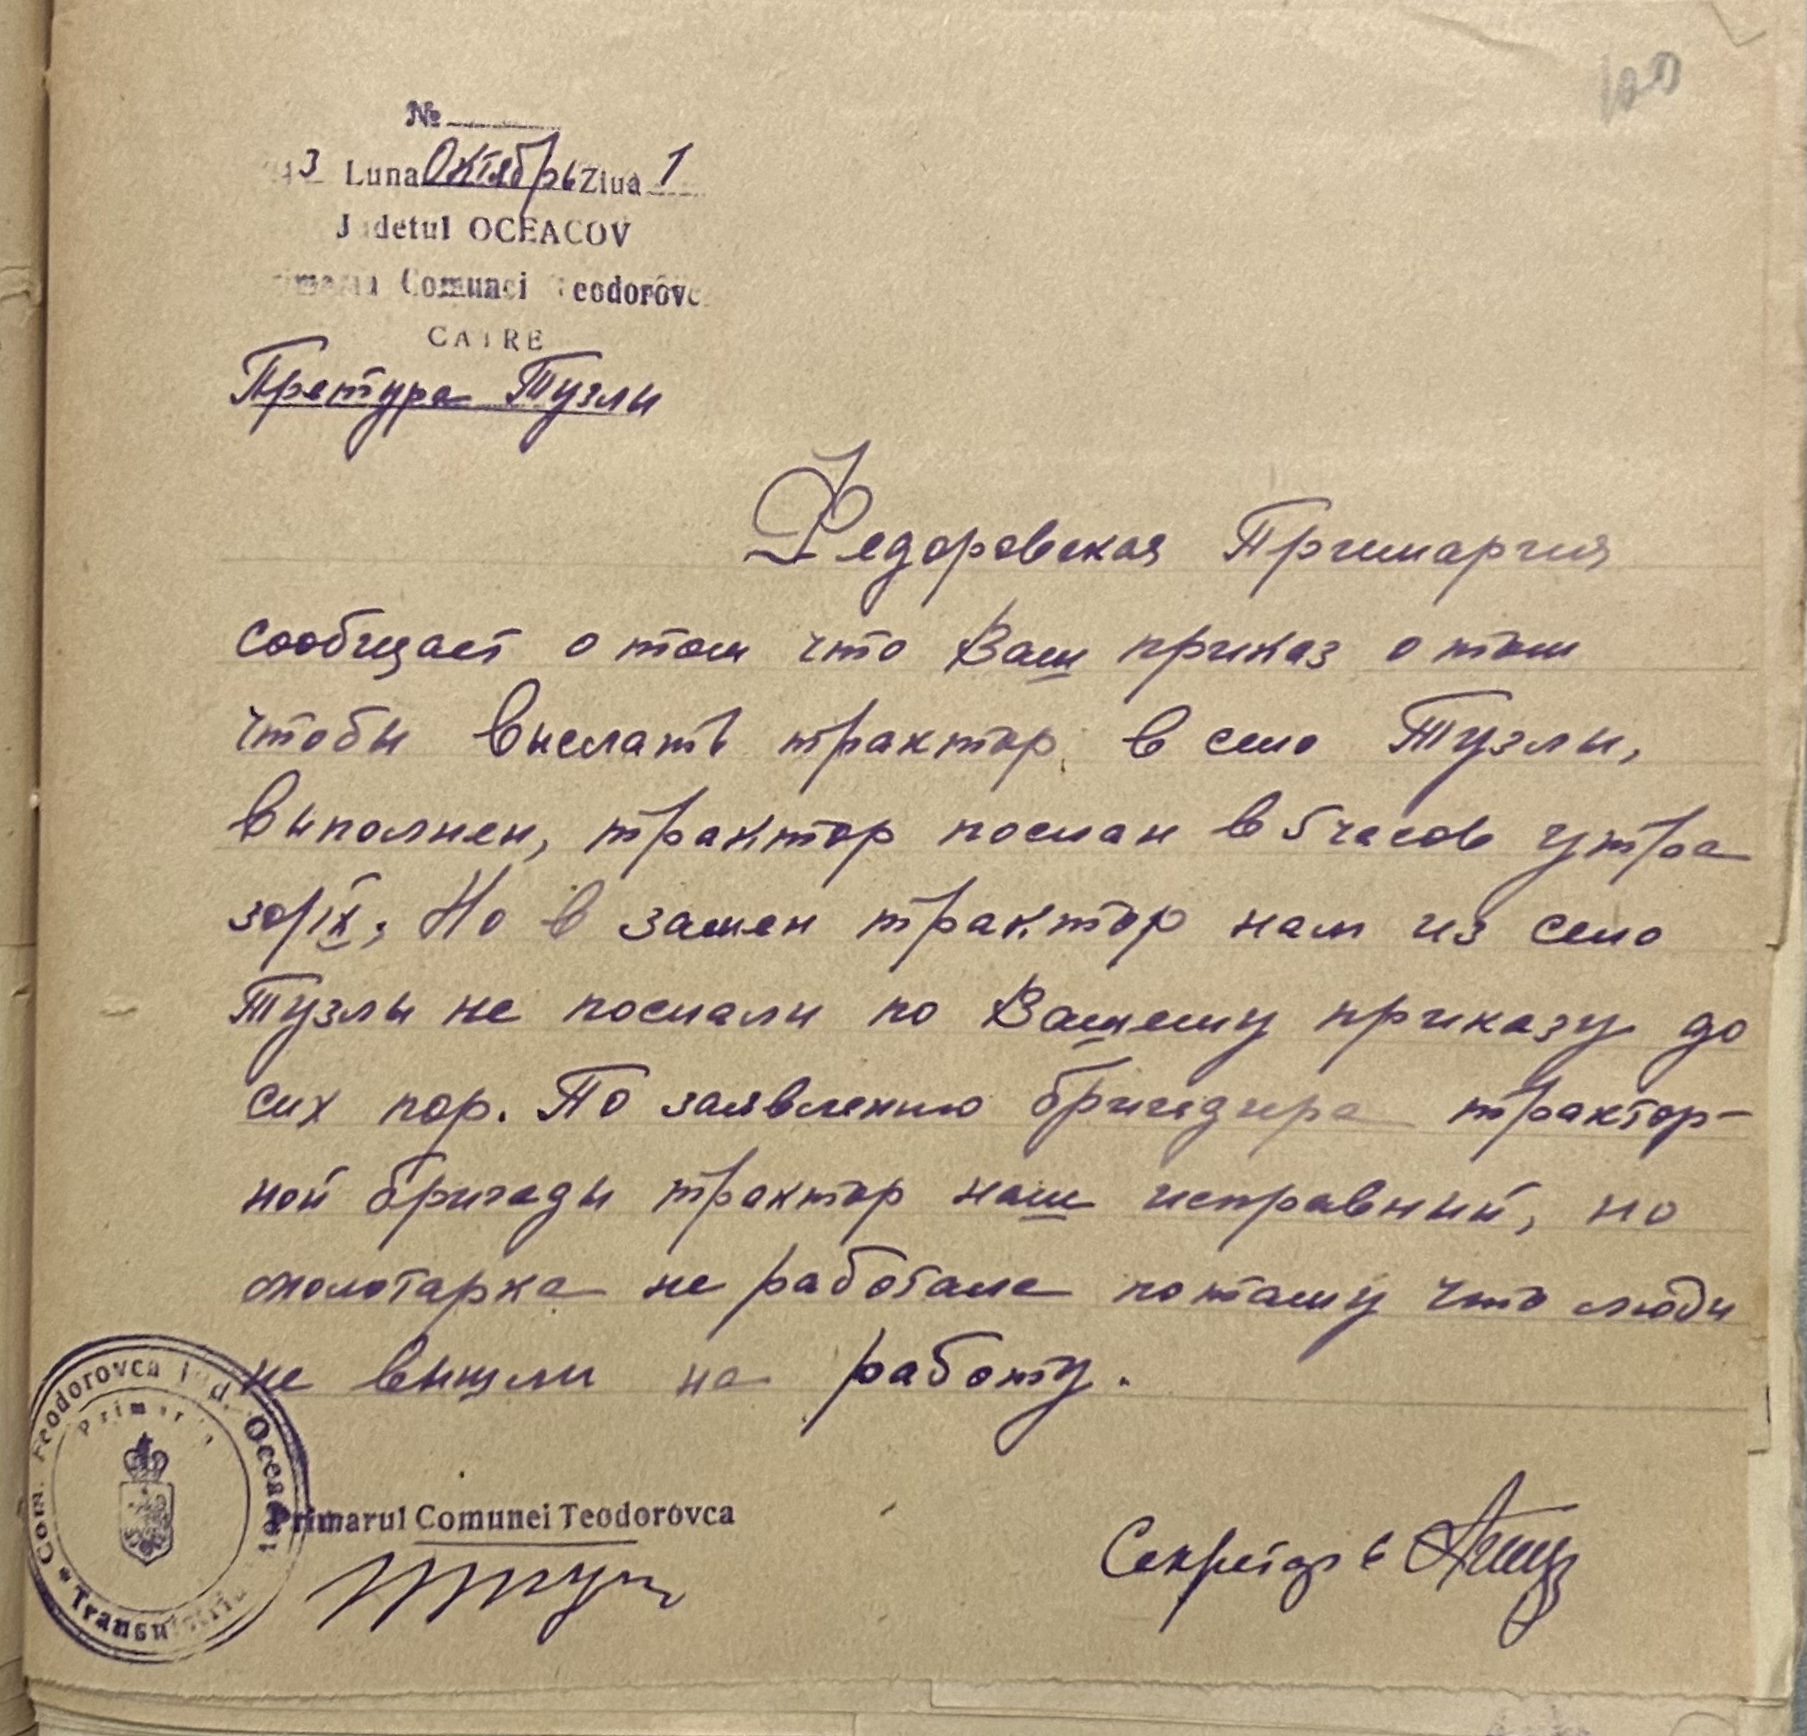 100
№
3 Luna Октябрь Ziua 1
Judetul OCEACOV
Primaria Comunei Teodorovca
CATRE
Претура Тузлы
Федоровская Примария
сообщает о том что Ваш приказ о том
чтобы выслать трактор в село Тузлы,
выполнен, трактор послан в 5 часов утра
30/IX. Но в замен трактор нам из село
Тузлы не послали по Вашему приказу до
сих пор. По заявлению бригадира трактор-
ной бригады трактор наш исправный, но
молотарка не работала потому что люди
не вышли на работу.
Com. Feodorovca Jud. Oceacov
Primaria
* Transnistria
Primarul Comunei Teodorovca
Секретарь